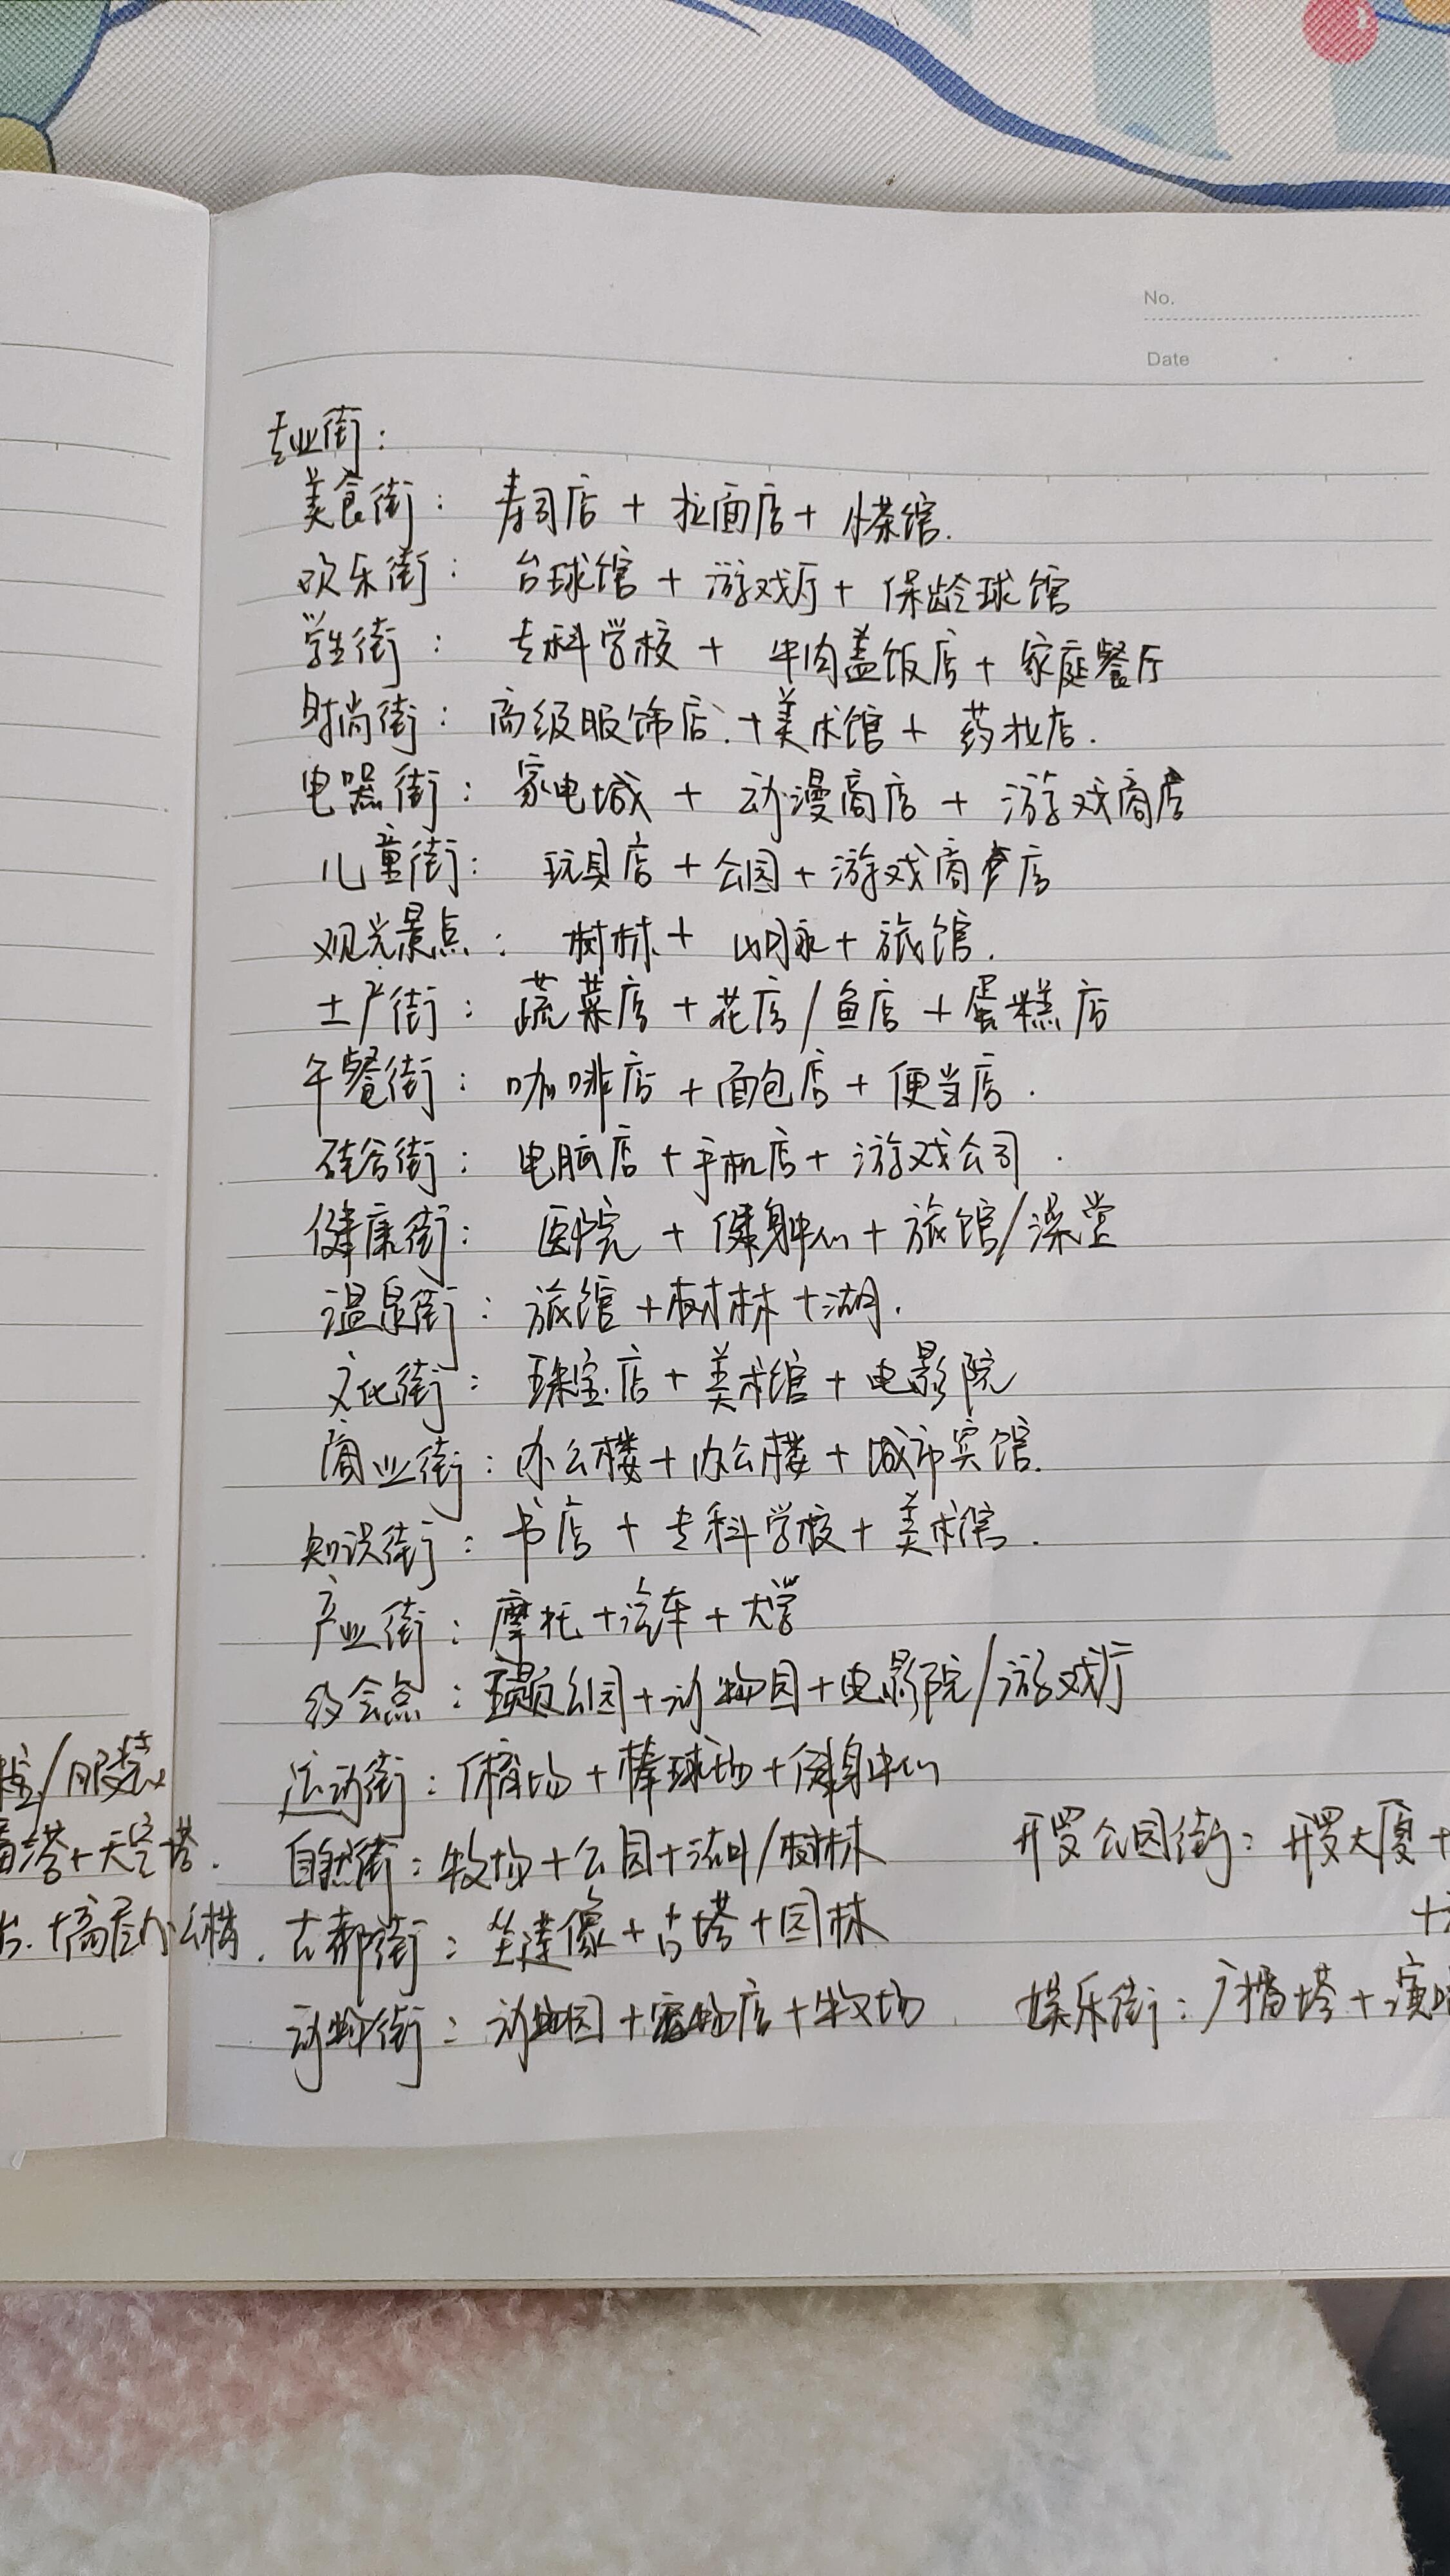 No.
Date
专业街：
美食街： 寿司店 + 拉面店 + 小茶馆.
欢乐街： 台球馆 + 游戏厅 + 保龄球馆
学生街： 专科学校 + 牛肉盖饭店 + 家庭餐厅
时尚街： 高级服饰店 + 美术馆 + 药妆店.
电器街： 家电城 + 动漫商店 + 游戏商店
儿童街： 玩具店 + 公园 + 游戏商店
观光景点： 树林 + + 旅馆.
土产街： 蔬菜店 + 花店/鱼店 + 蛋糕店
午餐街： 咖啡店 + 面包店 + 便当店.
硅谷街： 电脑店 + 手机店 + 游戏公司.
健康街： 医院 + 健身中心 + 旅馆/澡堂
温泉街： 旅馆 + 树林 + 湖.
文化街： 珠宝店 + 美术馆 + 电影院
商业街：办公楼 + 办公楼 + 城市宾馆.
知识街： 书店 + 专科学校 + 美术馆.
产业街：摩托 + 汽车 + 大学
约会点： 公园 + 动物园 + 电影院/游戏厅
/服装
运动街：体育场 + 棒球场 + 健身中心
塔 + 天空塔.
自然街：牧场 + 公园 + 湖/树林
开罗公园街：开罗大厦 +
+高层办公楼.
古都街： + 古塔 + 园林
+
动物街：动物园 + 宠物店 + 牧场
娱乐街：广播塔 + 演